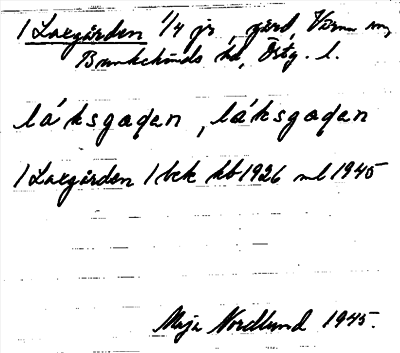 1 Laxgården 1/4 jr, gård, Värna sn,
Bankekinds hd, Östg. l.
láksgaɖen, láksgaɖen
1 Laxgården 1 bck kb 1926 ml 1945
Maja Nordlund 1945.